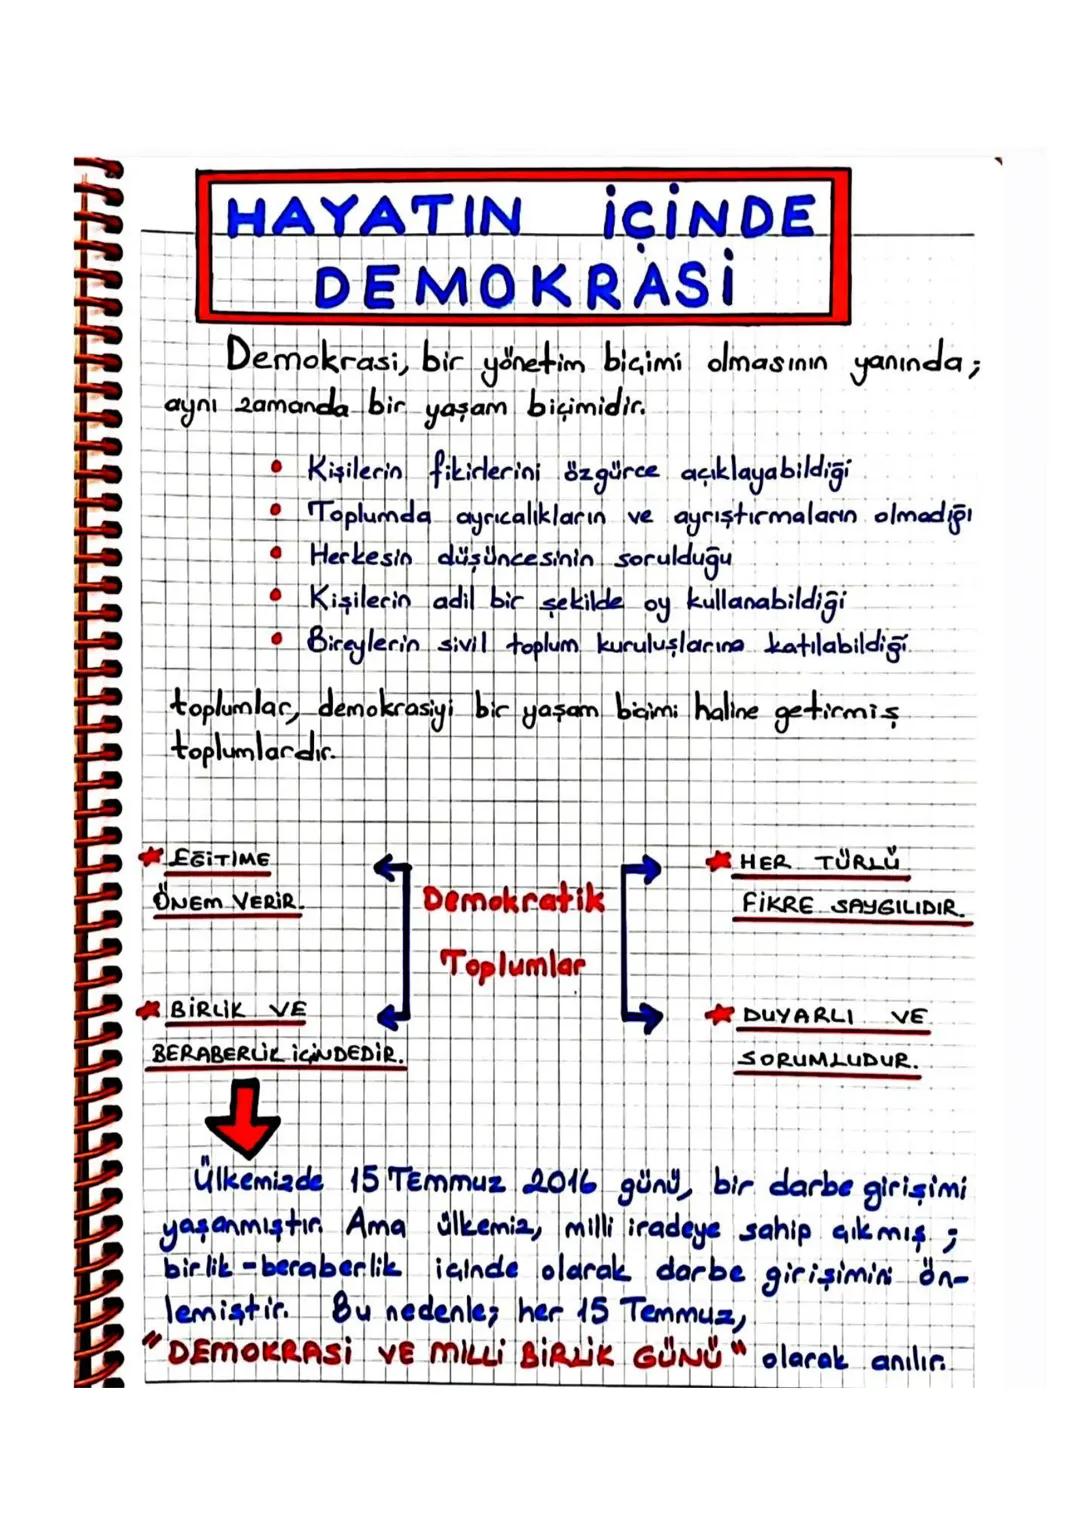 HAYATIN İÇİNDE
DEMOKRASİ
Demokrasi, bir yönetim biçimi olmasının yanında;
aynı zamanda bir yaşam biçimidir.
• Kişilerin fikirlerini özgürce açıklayabildiği
• Toplumda ayrıcalıkların ve ayrıştırmaların olmadığı
• Herkesin düşüncesinin sorulduğu
• Kişilerin adil bir şekilde oy kullanabildiği
• Bireylerin sivil toplum kuruluşlarına katılabildiği
toplumlar, demokrasiyi bir yaşam biçimi haline getirmiş
toplumlardır.
EĞİTİME
ÖNEM VERİR.
BİRLİK VE
BERABERLİK İÇİNDEDİR.
Demokratik
Toplumlar
HER TÜRLÜ
FİKRE SAYGILIDIR.
DUYARLI VE
SORUMLUDUR.
Ülkemizde 15 Temmuz 2016 günü, bir darbe girişimi
yaşanmıştır. Ama ülkemiz, milli iradeye sahip çıkmış ;
birlik-beraberlik içinde olarak darbe girişimini ön-
lemiştir. Bu nedenle; her 15 Temmuz,
"DEMOKRASİ VE MİLLİ BİRLİK GÜNÜ" olarak anılır.